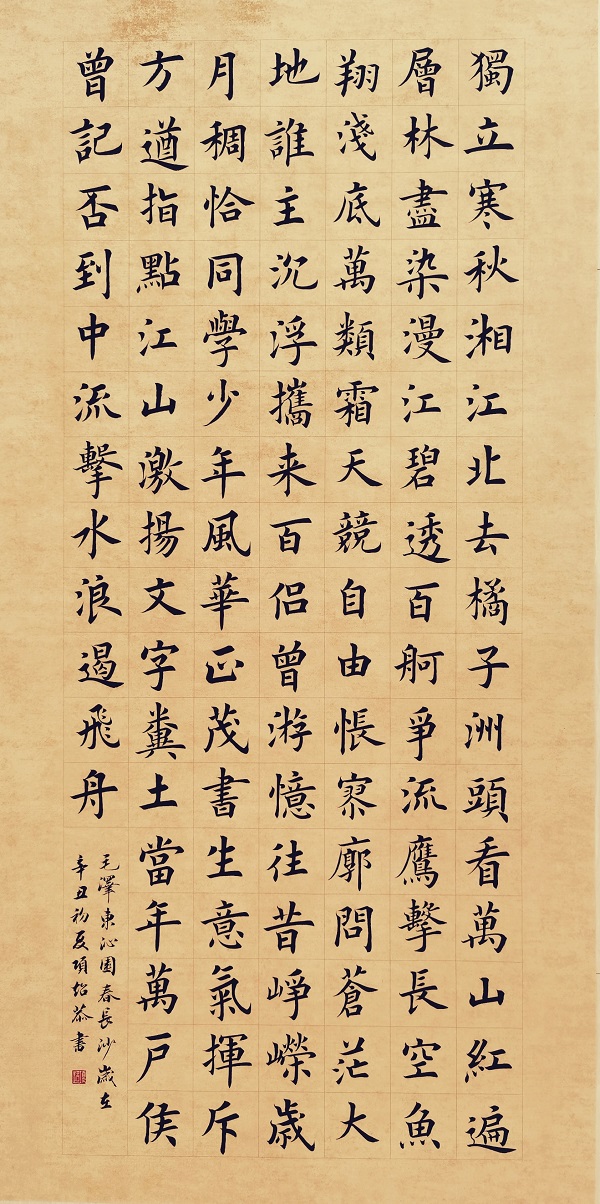 獨立寒秋湘江北去橘子洲頭看萬山紅遍
層林盡染漫江碧透百舸爭流鷹擊長空魚
翔淺底萬類霜天競自由悵寥廓問蒼茫大
地誰主沉浮攜来百侣曾游憶往昔崢嶸歲
月稠恰同學少年風華正茂書生意氣揮斥
方遒指點江山激揚文字糞土當年萬戸侯
曾記否到中流擊水浪遏飛舟
毛澤東沁園春長沙歲在
辛丑初夏項紹恭書